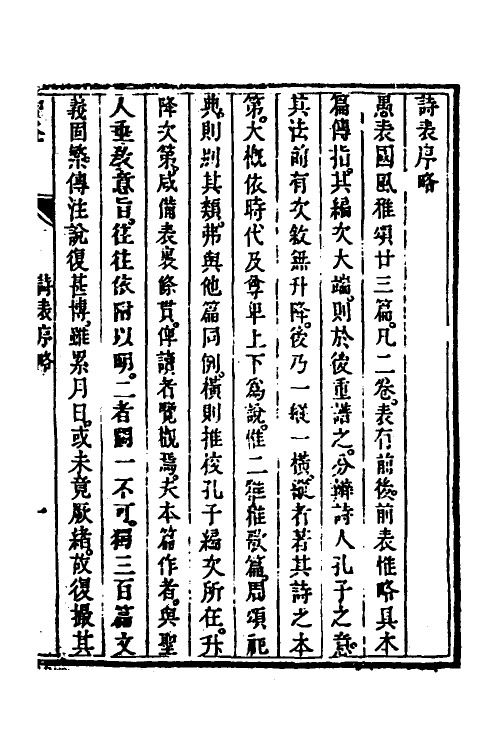 詩表序略
愚表國風雅頌廿三篇。凡二卷。表有前後。前表惟略具本
篇傳指。其編次大端。則於後重譜之。分辨詩人孔子之意。
其法前有次敘無升降。後乃一縱一橫。縱者著其詩之本
第。大概依時代及尊卑上下為說。惟二雅歌篇。周頌祀
典。則別其類。弗與他篇同例。橫則推從孔子編次所在。升
降次第。咸備表裏條貫。俾讀者覽概焉。夫本篇作者。與聖
人垂教意旨。往往依附以明。二者闕一不可。獨三百篇文
義固繁。傳注說復甚博。雖累月日。或未竟厥緒。故復撮其
詩表序略